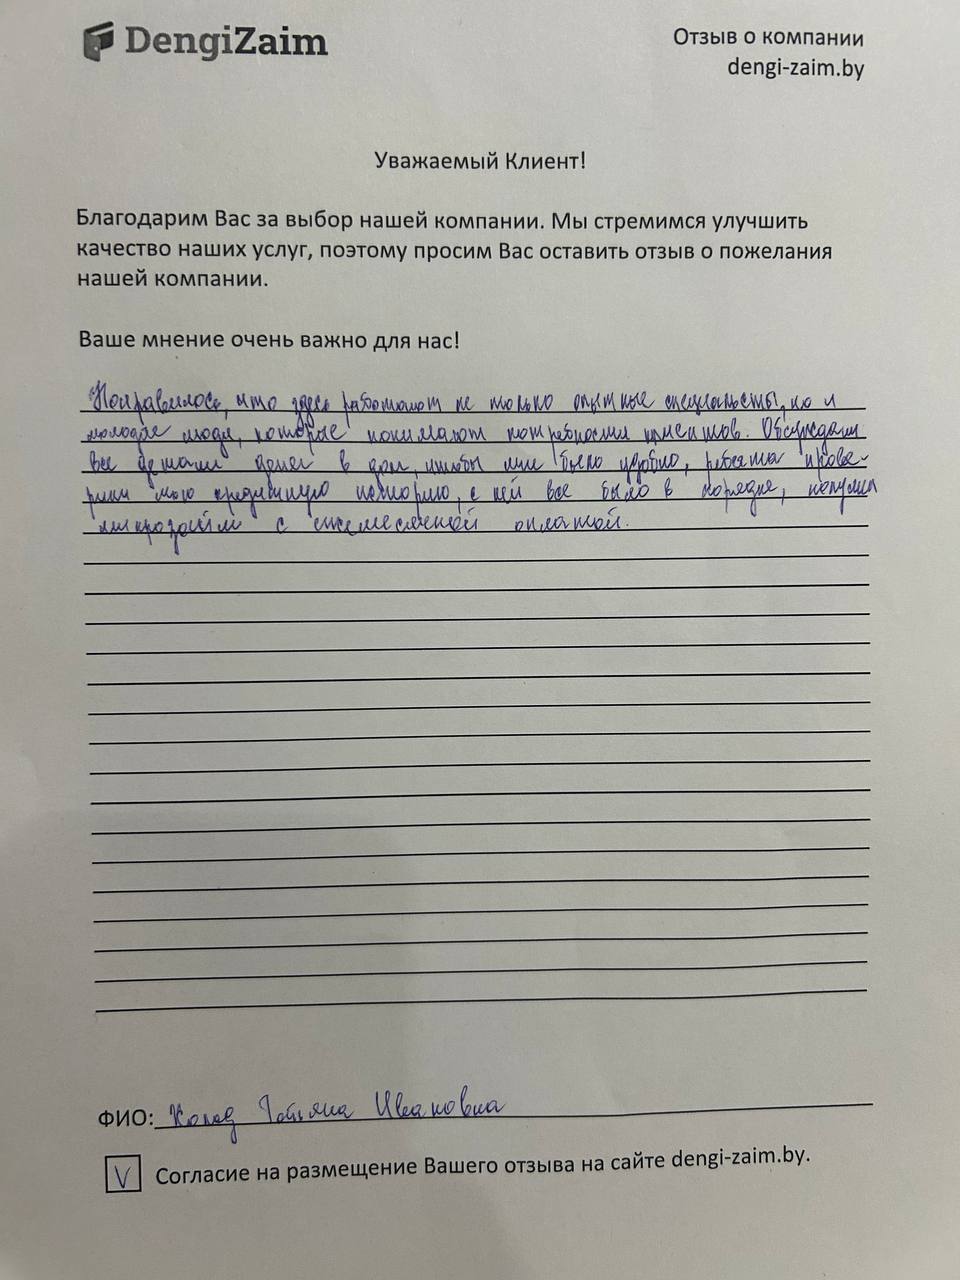 DengiZaim
Отзыв о компании
dengi-zaim.by
Уважаемый Клиент!
Благодарим Вас за выбор нашей компании. Мы стремимся улучшить
качество наших услуг, поэтому просим Вас оставить отзыв о пожелания
нашей компании.
Ваше мнение очень важно для нас!
Понравилось, что здесь работают не только опытные специалисты, но и
молодые люди, которые понимают потребности клиентов. Обсуждали
все детали денег в дом, чтобы мне было удобно, ребята прове-
рили мою кредитную историю, с ней все было в порядке, получила
микрозайм с ежемесячной оплатой.
ФИО: Татьяна Ивановна
V Согласие на размещение Вашего отзыва на сайте dengi-zaim.by.